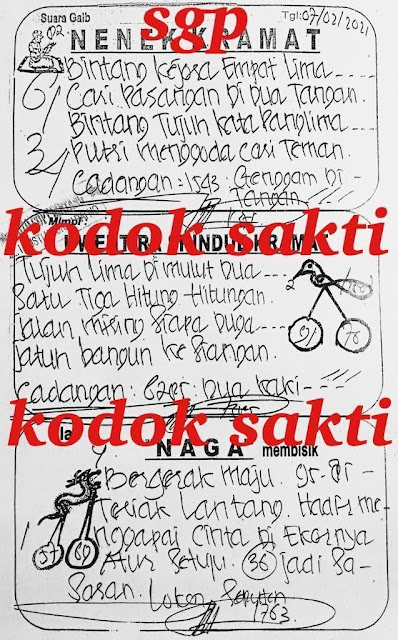 sgp
Suara Gaib
Tgl: 07/02/2021
02
NENEK KRAMAT
Bintang Kejora Empat Lima
6/ Cari Pasangan Di Dua Tangan.
Bintang Tujuh Kata Panglima
3/ Putri menggoda Cari Teman.
Cadangan: 1543: Genggam Di-
Tangan
kodok sakti
Mimpi
KRAMAT
Tujuh Lima Di mulut Dua
2
Satu Tiga Hitung Hitungan.
Jalan miring Siapa Duga
Jatuh bangun ke Siangan.
Cadangan: Dua kaki
kodok sakti
NAGA membisik
Bergerak Maju. Di-
Teriak Lantang.
nggapai Cinta Di Ekornya
Atur Setuju. 36 Jadi Sa-
Saran.
1763.